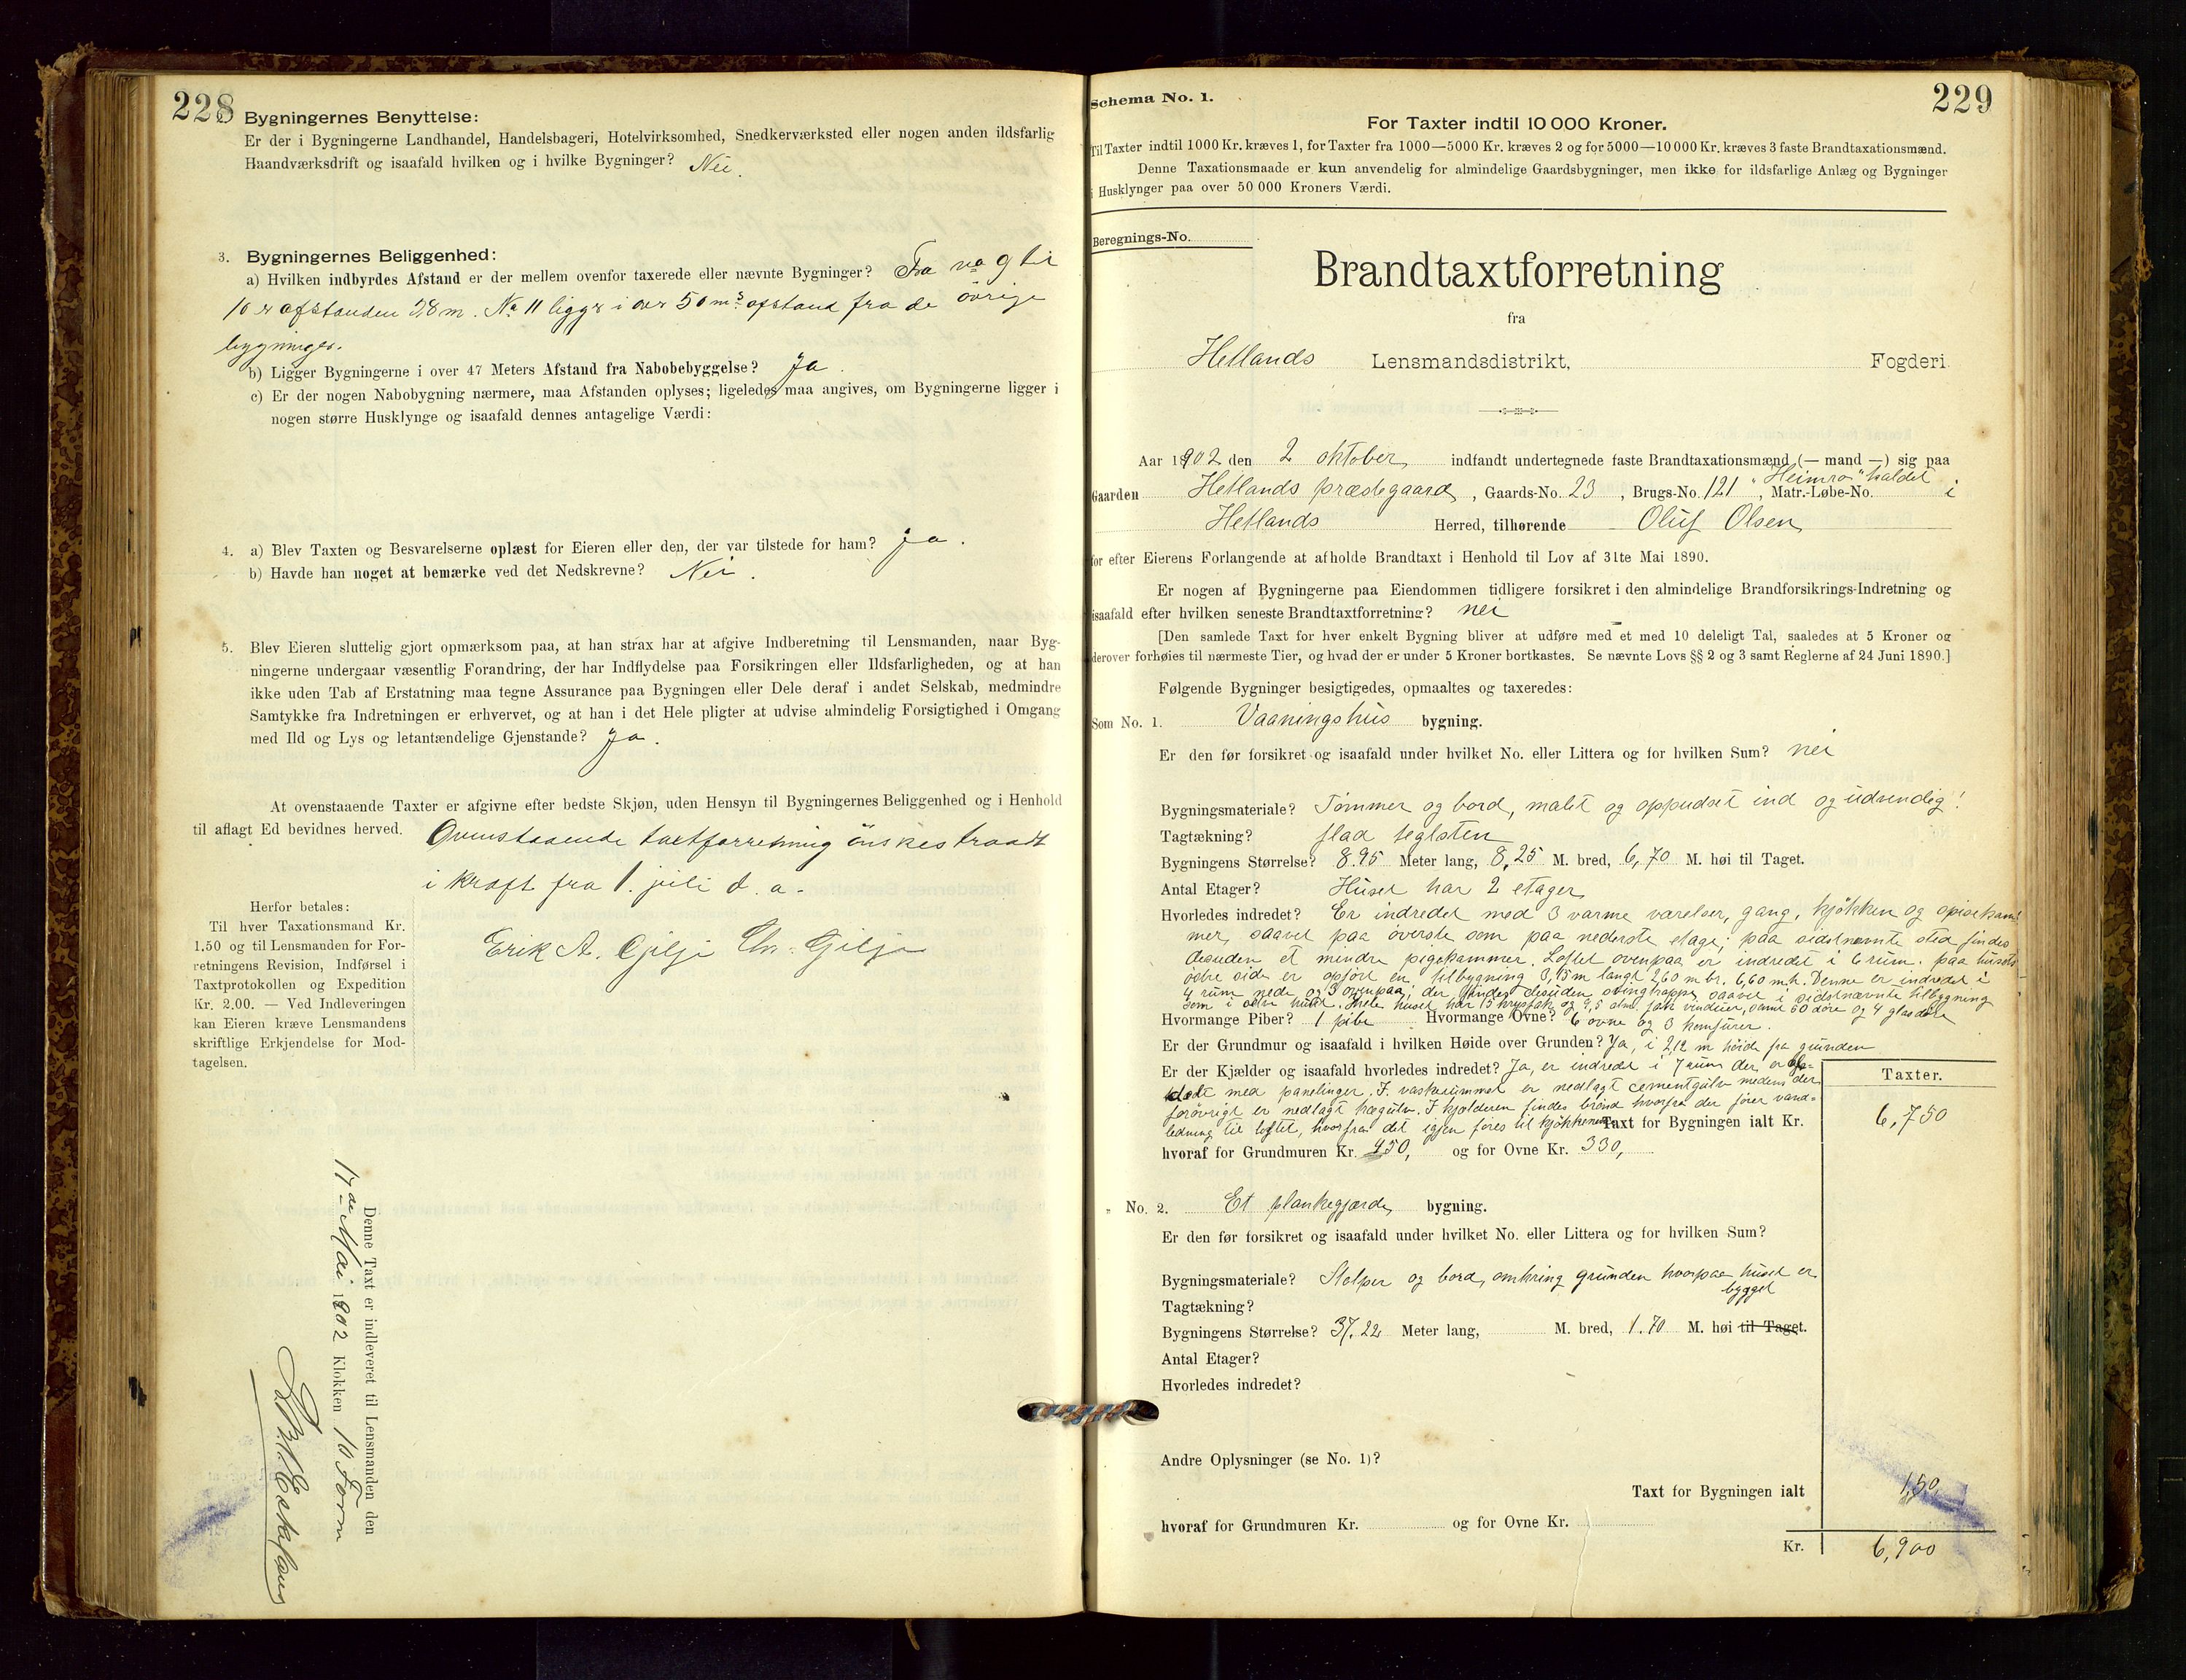 228
Bygningernes Benyttelse:
Er der i Bygningerne Landhandel, Handelsbageri, Hotelvirksomhed, Snedkerværksted eller nogen anden ildsfarlig
Haandværksdrift og isaafald hvilken og i hvilke Bygninger? Nei.
3. Bygningernes Beliggenhed:
a) Hvilken indbyrdes Afstand er der mellem ovenfor taxerede eller nævnte Bygninger? Fra no 9 til
10 er afstanden 28 m. No 11 ligger i over 50 m afstand fra de övrige
bygninger.
b) Ligger Bygningerne i over 47 Meters Afstand fra Nabobebyggelse? Ja.
c) Er der nogen Nabobygning nærmere, maa Afstanden oplyses; ligeledes maa angives, om Bygningerne ligger i
nogen større Husklynge og isaafald dennes antagelige Værdi:
4. a) Blev Taxten og Besvarelserne oplæst for Eieren eller den, der var tilstede for ham? Ja.
b) Havde han noget at bemærke ved det Nedskrevne? Nei.
5. Blev Eieren sluttelig gjort opmærksom paa, at han strax har at afgive Indberetning til Lensmanden, naar Byg-
ningerne undergaar væsentlig Forandring, der har Indflydelse paa Forsikringen eller Ildsfarligheden, og at han
ikke uden Tab af Erstatning maa tegne Assurance paa Bygningen eller Dele deraf i andet Selskab, medmindre
Samtykke fra Indretningen er erhvervet, og at han i det Hele pligter at udvise almindelig Forsigtighed i Omgang
med Ild og Lys og letantændelige Gjenstande? Ja.
At ovenstaaende Taxter er afgivne efter bedste Skjøn, uden Hensyn til Bygningernes Beliggenhed og i Henhold
til aflagt Ed bevidnes herved. Ovenstaaende taxtforretning önskes traadt
i kraft fra 1. juli d. a.
Erik A. Gilje Chr. Gilje
Herfor betales:
Til hver Taxationsmand Kr.
1.50 og til Lensmanden for For-
retningens Revision, Indførsel i
Taxtprotokollen og Expedition
Kr. 2.00. — Ved Indleveringen
kan Eieren kræve Lensmandens
skriftlige Erkjendelse for Mod-
tagelsen.
Denne Taxt er indleveret til Lensmanden den
17de Mai 1902 Klokken 10 Form
229
Schema No. 1.
For Taxter indtil 10 000 Kroner.
Til Taxter indtil 1000 Kr. kræves 1, for Taxter fra 1000—5000 Kr. kræves 2 og for 5000—10 000 Kr. kræves 3 faste Brandtaxationsmænd.
Denne Taxationsmaade er kun anvendelig for almindelige Gaardsbygninger, men ikke for ildsfarlige Anlæg og Bygninger
i Husklynger paa over 50 000 Kroners Værdi.
Beregnings-No.
Brandtaxtforretning
fra
Hetlands Lensmandsdistrikt, Fogderi
Aar 1902 den 2 oktober indfandt undertegnede faste Brandtaxationsmænd (— mand —) sig paa
"Heimro" kaldet
Gaarden Hetlands prædstegaard, Gaards-No. 23, Brugs-No. 121, Matr.-Løbe-No. i
Hetlands Herred, tilhørende Oluf Olsen
for efter Eierens Forlangende at afholde Brandtaxt i Henhold til Lov af 31te Mai 1890.
Er nogen af Bygningerne paa Eiendommen tidligere forsikret i den almindelige Brandforsikrings-Indretning og
isaafald efter hvilken seneste Brandtaxtforretning? nei
[Den samlede Taxt for hver enkelt Bygning bliver at udføre med et med 10 deleligt Tal, saaledes at 5 Kroner og
derover forhøies til nærmeste Tier, og hvad der er under 5 Kroner bortkastes. Se nævnte Lovs §§ 2 og 3 samt Reglerne af 24 Juni 1890.]
Følgende Bygninger besigtigedes, opmaaltes og taxeredes:
Som No. 1. Vaaningshus bygning.
Er den før forsikret og isaafald under hvilket No. eller Littera og for hvilken Sum? nei
Bygningsmateriale? Tömmer og bord, malet og oppudset ind og udvendig!
Tagtækning? flad teglsten
Bygningens Størrelse? 8.95 Meter lang, 8,25 M. bred, 6,70 M. høi til Taget.
Antal Etager? Huset har 2 etager
Hvorledes indredet? Er indredet med 3 varme værelser, gang, kjökken og spisekam-
mer, saavel paa överste som paa nederste etage; paa sidstnævnte sted findes
desuden et mindre pigekammer. Loftet ovenpaa er indredet i 6 rum. Paa husets
östre side er opfört en tilbygning 3,15 m langt 2,60 m br. 6,60 m h. Denne er indredet i
4 rum nede og 3 ovenpaa; der findes desuden svingtrappe saavel i sidstnævnte tilbygning
som i selve huset. Hele huset har 15 krypfak og 9,5 alm. fak vinduer, samt 60 döre og 4 glasdöre
Hvormange Piber? 1 pibe Hvormange Ovne? 6 ovne og 3 komfürer.
Er der Grundmur og isaafald i hvilken Høide over Grunden? Ja, i 2,12 m höide fra grunden
Er der Kjælder og isaafald hvorledes indredet? Ja, er indredet i 7 rum der er
med panelinger. I vaskerummet er nedlagt cementgulv medens der
forövrigt er nedlagt trægulv. I kjælderen findes brönd hvorfra der förer vand-
ledning til loftet, hvorfra det igjen föres til kjökkenerne
Taxt for Bygningen ialt Kr.
Taxter.
6,750
hvoraf for Grundmuren Kr. 450, og for Ovne Kr. 330,
„ No. 2. Et plankegjærde bygning.
Er den før forsikret og isaafald under hvilket No. eller Littera og for hvilken Sum?
Bygningsmateriale? Stolper og bord, omkring grunden hvorpaa huset er
bygget
Tagtækning?
Bygningens Størrelse? 37.22 Meter lang, M. bred, 1.70 M. høi til Taget.
Antal Etager?
Hvorledes indredet?
Andre Oplysninger (se No. 1)?
Taxt for Bygningen ialt 150
hvoraf for Grundmuren Kr. og for Ovne Kr.
Kr. 6,900